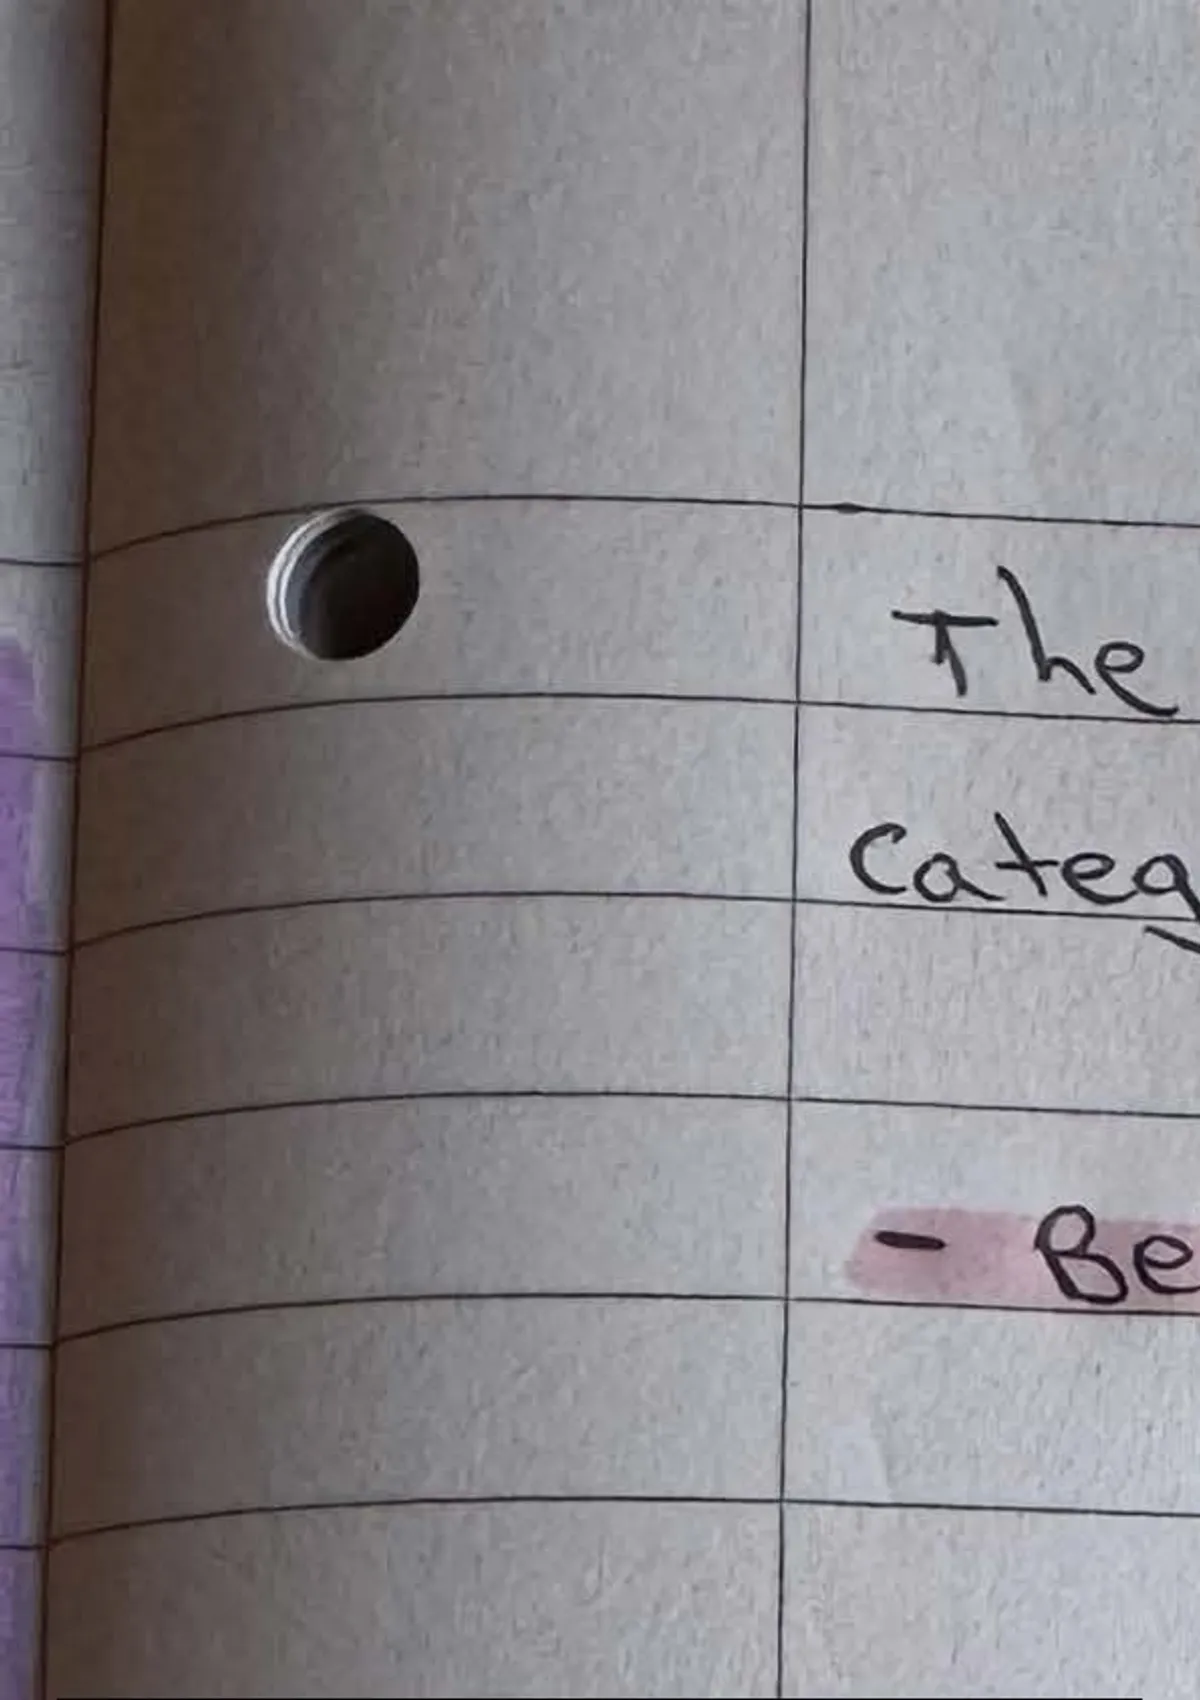 The
categ
- Be